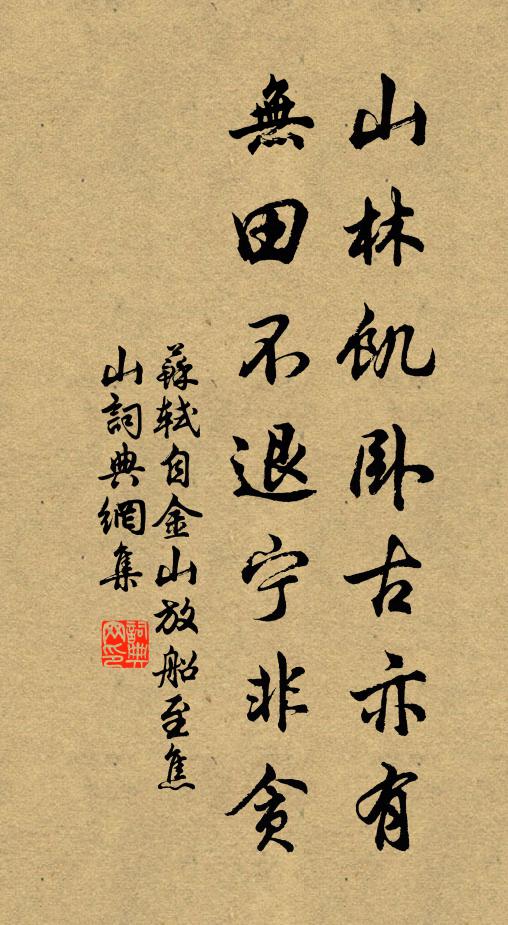 山林飢卧古亦有
無田不退宁非貪
蘇軾自金山放船至焦
山詞典網集
詞典網印